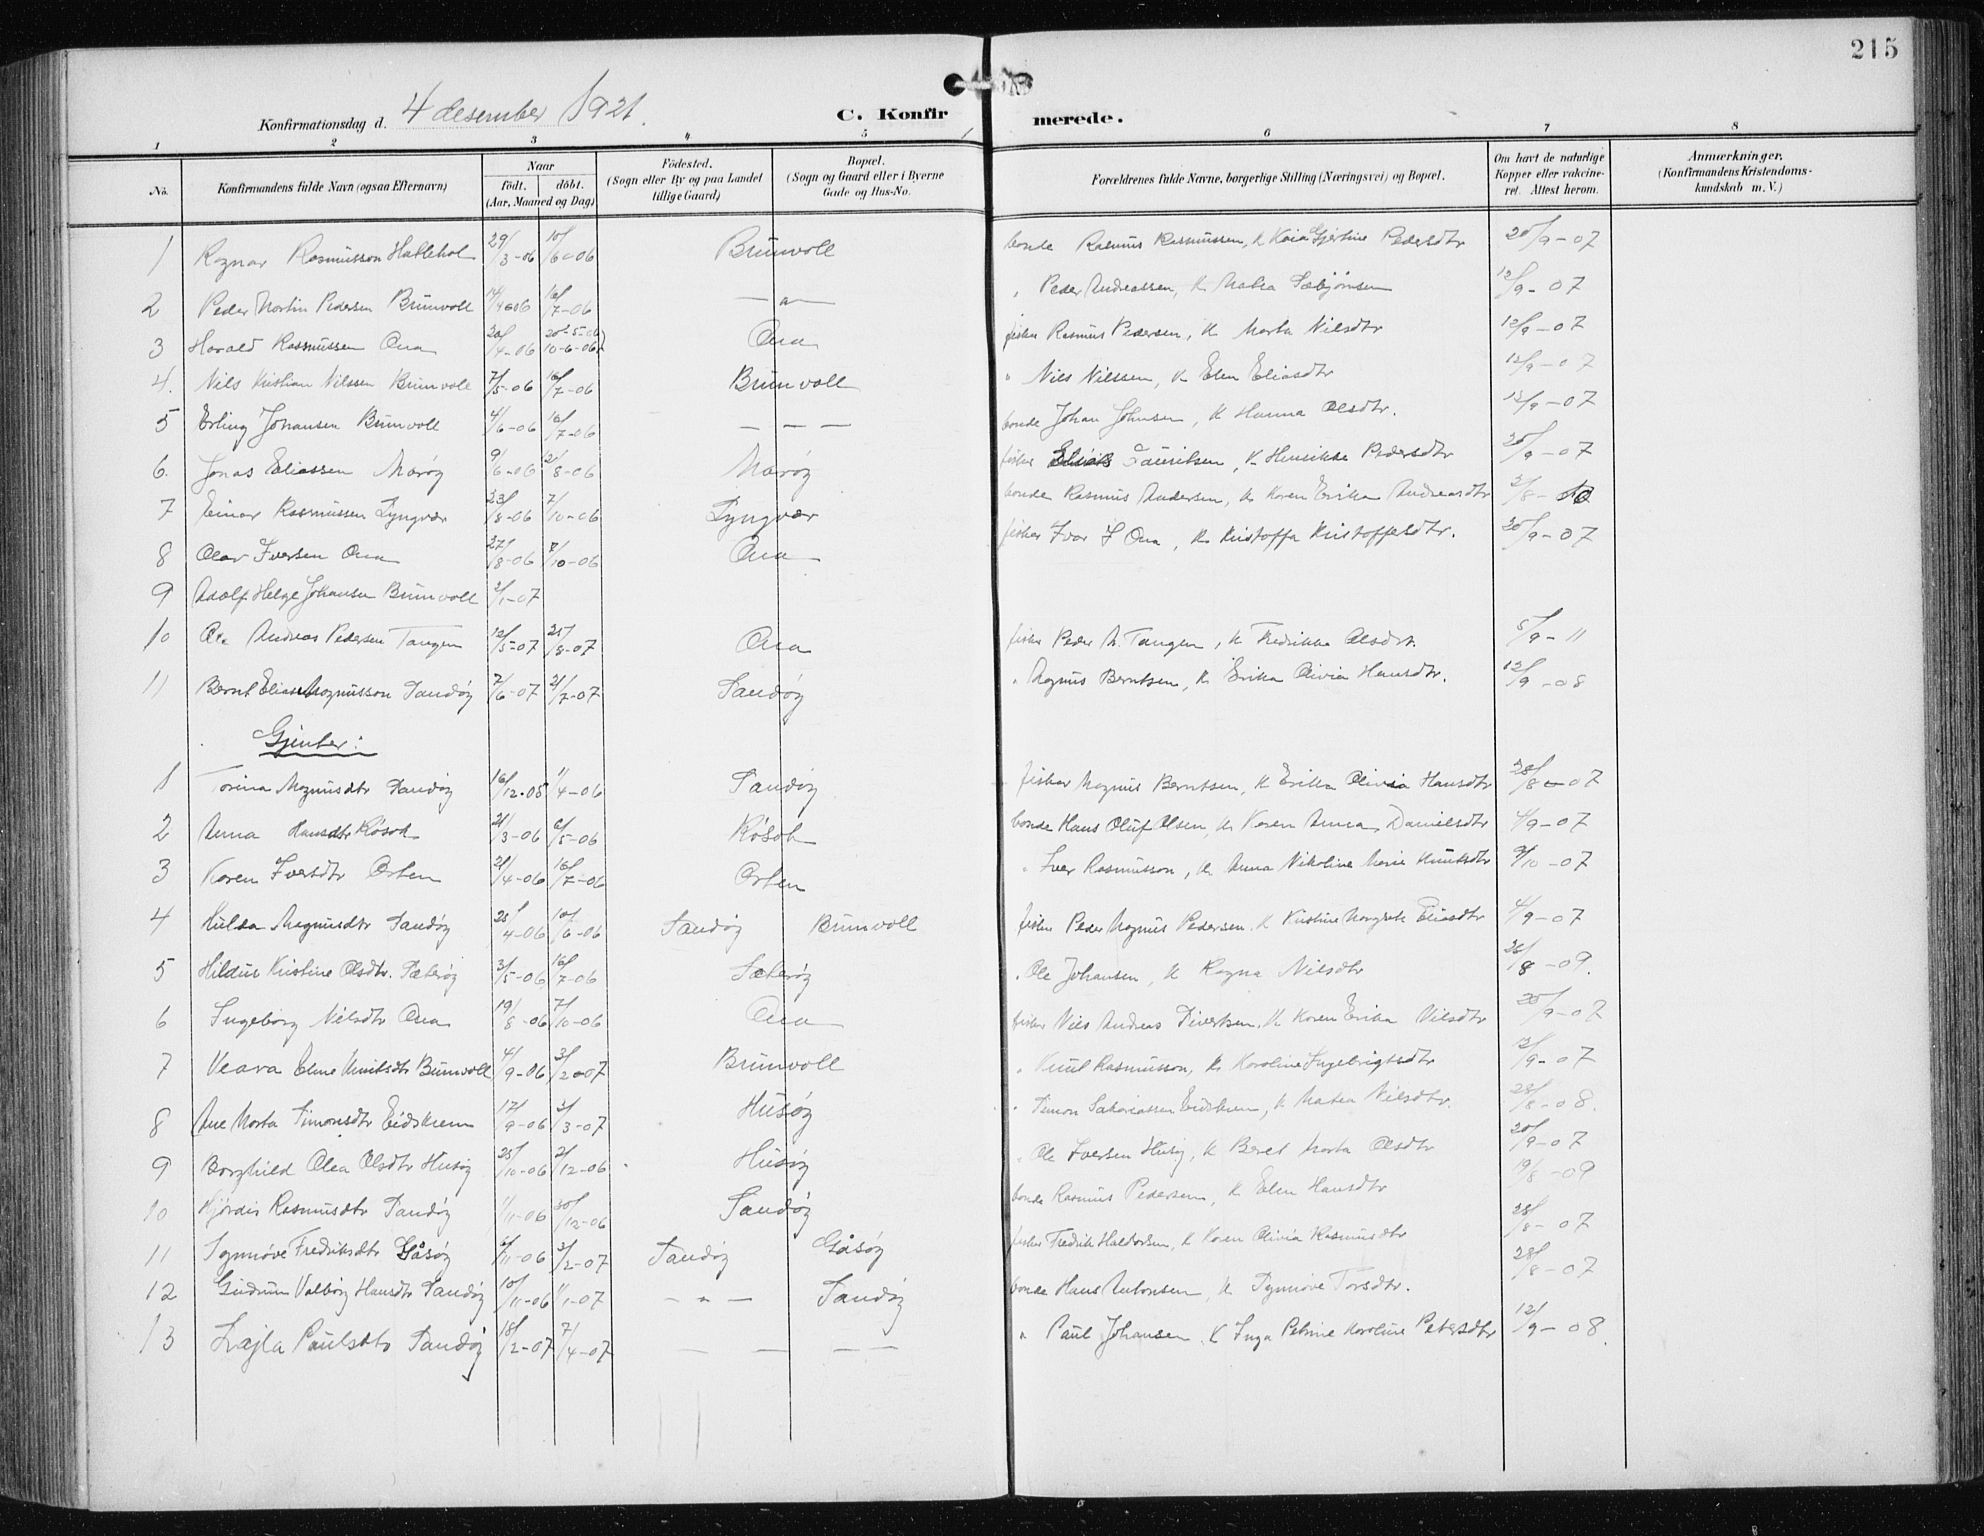 215
Konfirmationsdag d. 4 desember 1921.
C. Konfir merede.
1 2 3 4 5 6 7 8
No. Konfirmandens fulde Navn (ogsaa Efternavn) Naar født. døbt. (Aar, Maaned og Dag) Fødested. (Sogn eller By og paa Landet tillige Gaard) Bopæl. (Sogn og Gaard eller i Byerne Gade og Hus-No. Forældrenes fulde Navne, borgerlige Stilling (Næringsvei) og Bopæl. Om havt de naturlige Kopper eller vakcineret. Attest herom. Anmærkninger, (Konfirmandens Kristendomskundskab m. V.)
1 Ragnar Rasmusson Hatlehol 29/3-06 10/6-06 Brunvoll bonde Rasmus Rasmussen, K Kaia Gjertine Pedersdtr 20/9-07
2 Peder Martin Pedersen Brunvoll 14/4-06 16/7-06 — " — " Peder Andreassen, K Matea 12/9-07
3 Harald Rasmussen Ona 20/4-06 20-5-06 10-6-06 Ona fisker Rasmus Pedersen, K Marta Nilsdtr 12/9-07
4. Nils Kristian Nilssen Brunvoll 7/5-06 16/7-06 Brunvoll " Nils Nilssen, K Elen Eliasdtr 12/9-07
5 Erling Johansen Brunvoll 4/6-06 16/7-06 — — — bonde Johan Johnsen, K Hanna Olsdtr. 12/9-07
6. Jonas Eliassen Marøy 9/6-06 2/8-06 Marøy fisker Elias Lauritsen, K Henrikke Pedersdtr 20/9-07
7 Einar Rasmussen Lyngvær 23/8-06 7/10-06 Lyngvær bonde Rasmus Andersen, K Karen Erika Andreasdtr 2/8-
8 Olav Iversen Ona 27/8-06 7/10-06 Ona fisker Ivar I Ona, K Kristoffa Kristoffersdtr. 20/9-07
9 Adolf Helge Johansen Brunvoll 2/1-07
10 Ole Andreas Pedersen Tangen 12/5-07 25/8-07 Ona fisker Peder A. Tangen, K Fredrikke Olsdtr. 5/9-11
11 Bernt Elias Magnusson Sandøy 7/6-07 21/7-07 Sandøy " Magnus Berntsen, K Erika Olivia Hansdtr. 12/9-08
Gjenter:
1 Torina Magnusdtr Sandøy 16/12-05 1/4-06 Sandøy fisker Magnus Berntsen, K Erika Olivia Hansdtr 28/8-07
2 Anna Hansdtr Røsok 21/3-06 6/5-06 Røsok bonde Hans Oluf Olsen, K Karen Anna Danielsdtr 4/9-07
3 Karen Iversdtr Orten 21/4-06 16/7-06 Orten " Iver Rasmusson, K Anna Nikoline Marie Knutsdtr 9/10-07
4 Hulda Magnusdtr Sandøy 25/4-06 10/6-06 Sandøy Brunvoll fisker Peder Magnus Pedersen, K Kristine Margrete Eliasdtr 4/9-07
5 Hildur Kristine Olsdtr. Sæterøy 3/5-06 16/7-06 Sæterøy " Ole Johansen, K Ragna Nilsdtr 26/8-09.
6 Ingeborg Nilsdtr Ona 19/8-06 7/10-06 Ona fisker Nils Andreas Sivertsen, K Karen Erika Nilsdtr 20/9-07
7 Veava Eline Knutsdtr Brunvoll 4/9-06 3/2-07 Brunvoll " Knut Rasmusson, K Karoline Ingebrigtsdtr 12/9-07
8 Ane Marta Simonsdtr Eidskrem 17/9-06 3/3-07 Husøy " Simon Sakariassen Eidskrem, K Matea Nilsdtr. 28/8-08.
9 Borghild Olea Olsdtr Husøy 25/10-06 2/12-06 Husøy " Ole Iversen Husøy, K Beret Marta Olsdtr 20/9-07
10 Hjørdis Rasmusdtr Sandøy 1/11-06 30/12-06 Sandøy bonde Rasmus Pedersen, K Elen Hansdtr 19/8-09
11 Synnøve Fredriksdtr Gåsøy 6/11-06 3/2-07 Sandøy Gåsøy fisker Fredrik Haldorsen, K Karen Olivia Rasmusdtr 28/8-07
12 Gudrun Valborg Hansdtr Sandøy 10/11-06 1/1-07 — " — Sandøy bonde Hans Antonsen, K Synnøve Torsdtr. 28/8-07
13 Lajla Paulsdtr Sandøy 18/2-07 7/4-07 — — — — " Paul Johansen, K Inga Petrine Karoline Petersdtr 12/9-08.